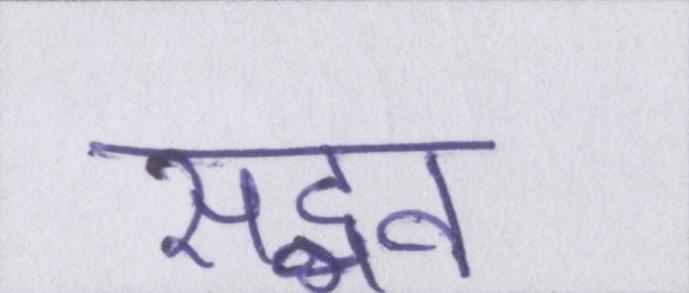 सद्भव